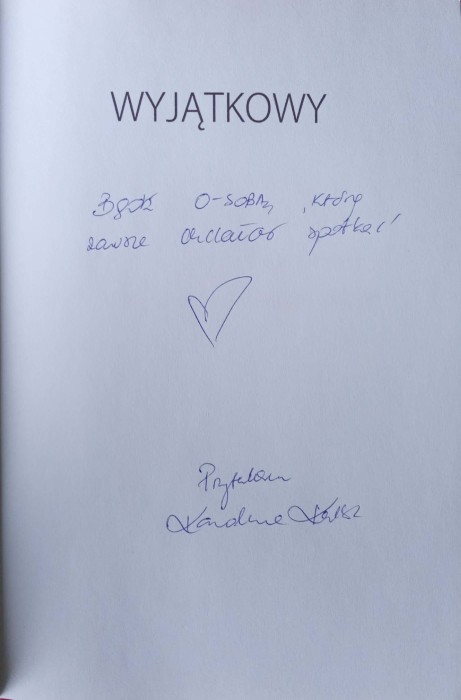 WYJĄTKOWY
Bądź O-SOBĄ, którą
zawsze chciałaś spotkać!
Przytulam
Karolina